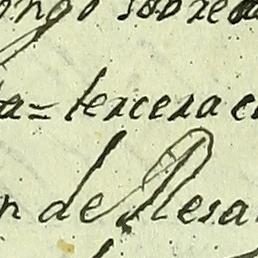 ongo sobre
ta = tercera c
n de Mesa